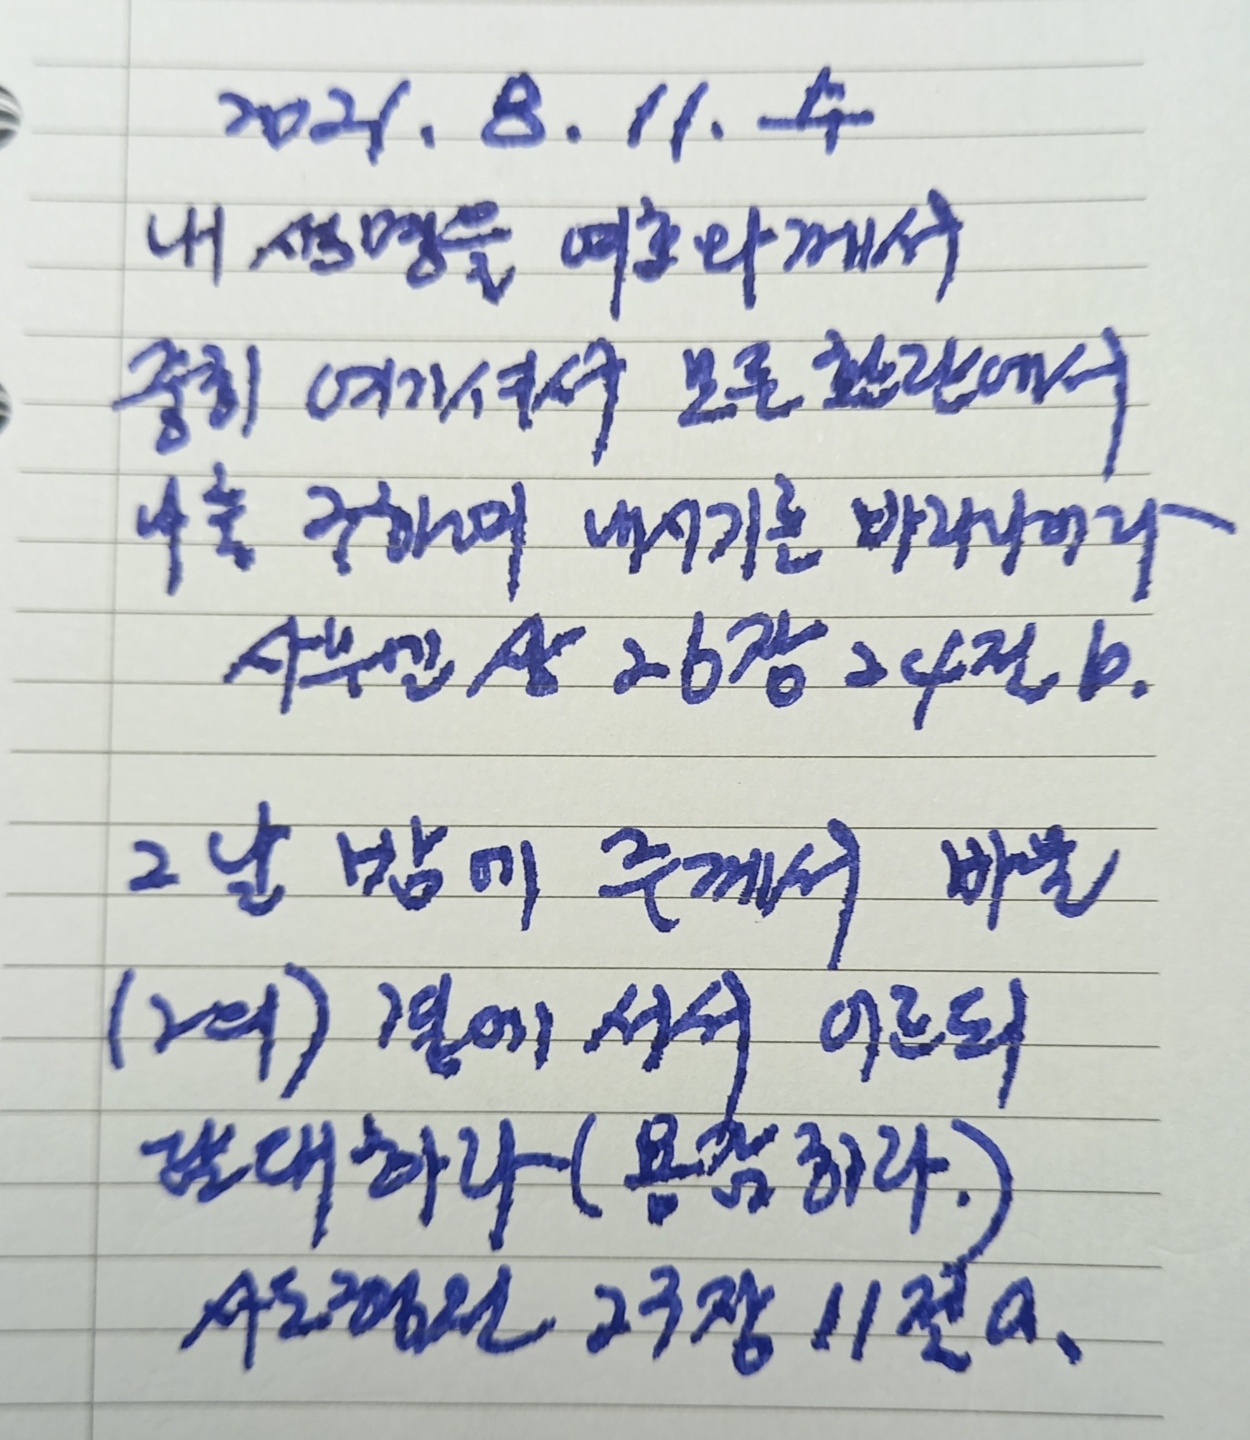 2021. 8. 11. 수
내 생명을 여호와께서
중히 여기셔서 모든 환난에서
나를 구하여 내시기를 바라나이다
사무엘상 26장 24절 b.
그날 밤에 주께서 바울
(그의) 곁에 서서 이르되
담대하라 (용감하라.)
사도행전 23장 11절 a.